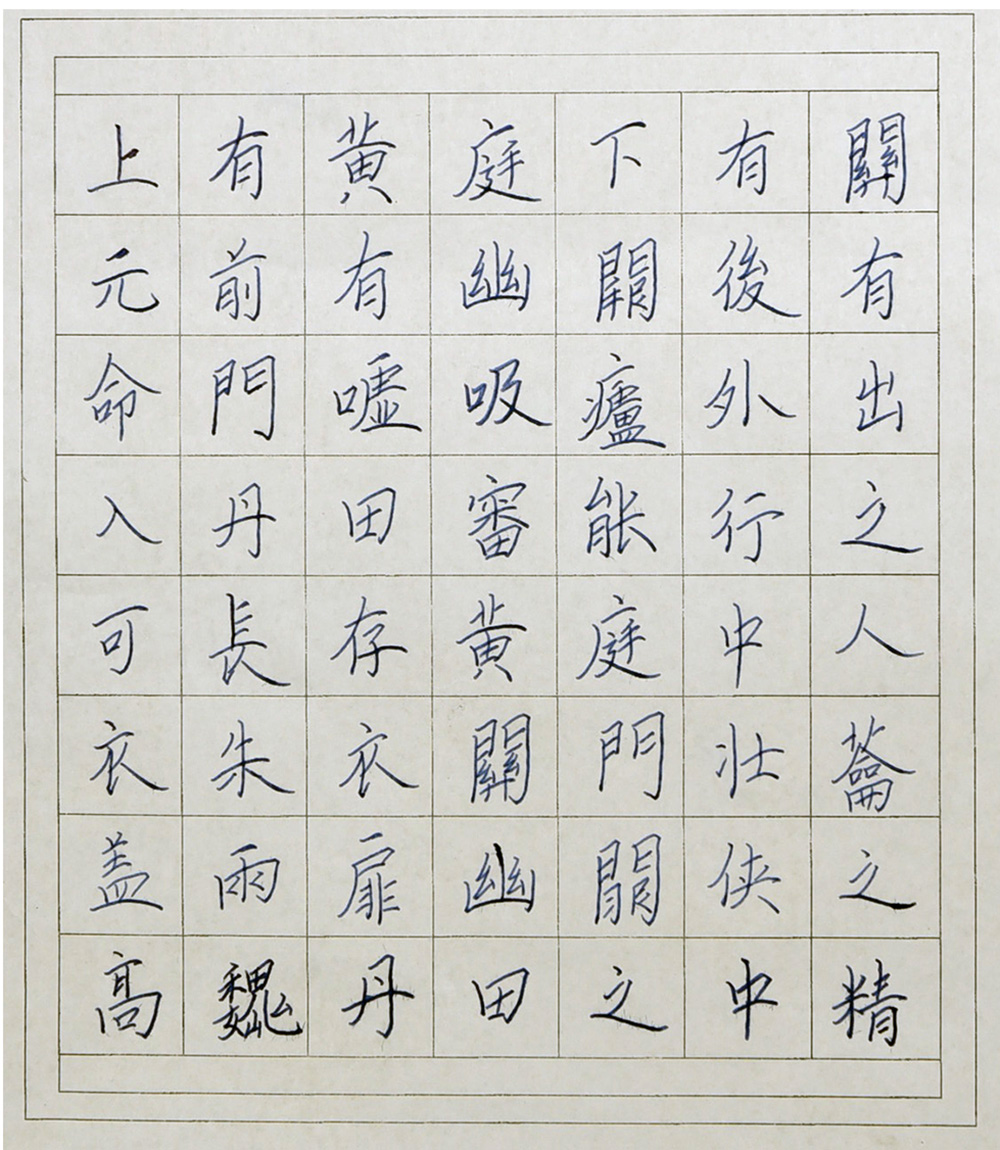 上有黄庭下有關
元前有幽闕後有
命門嘘吸廬外出
入丹田審能行之
可長存黄庭中人
衣朱衣關門壯蘥
盖雨扉幽闕侠之
高巍丹田之中精